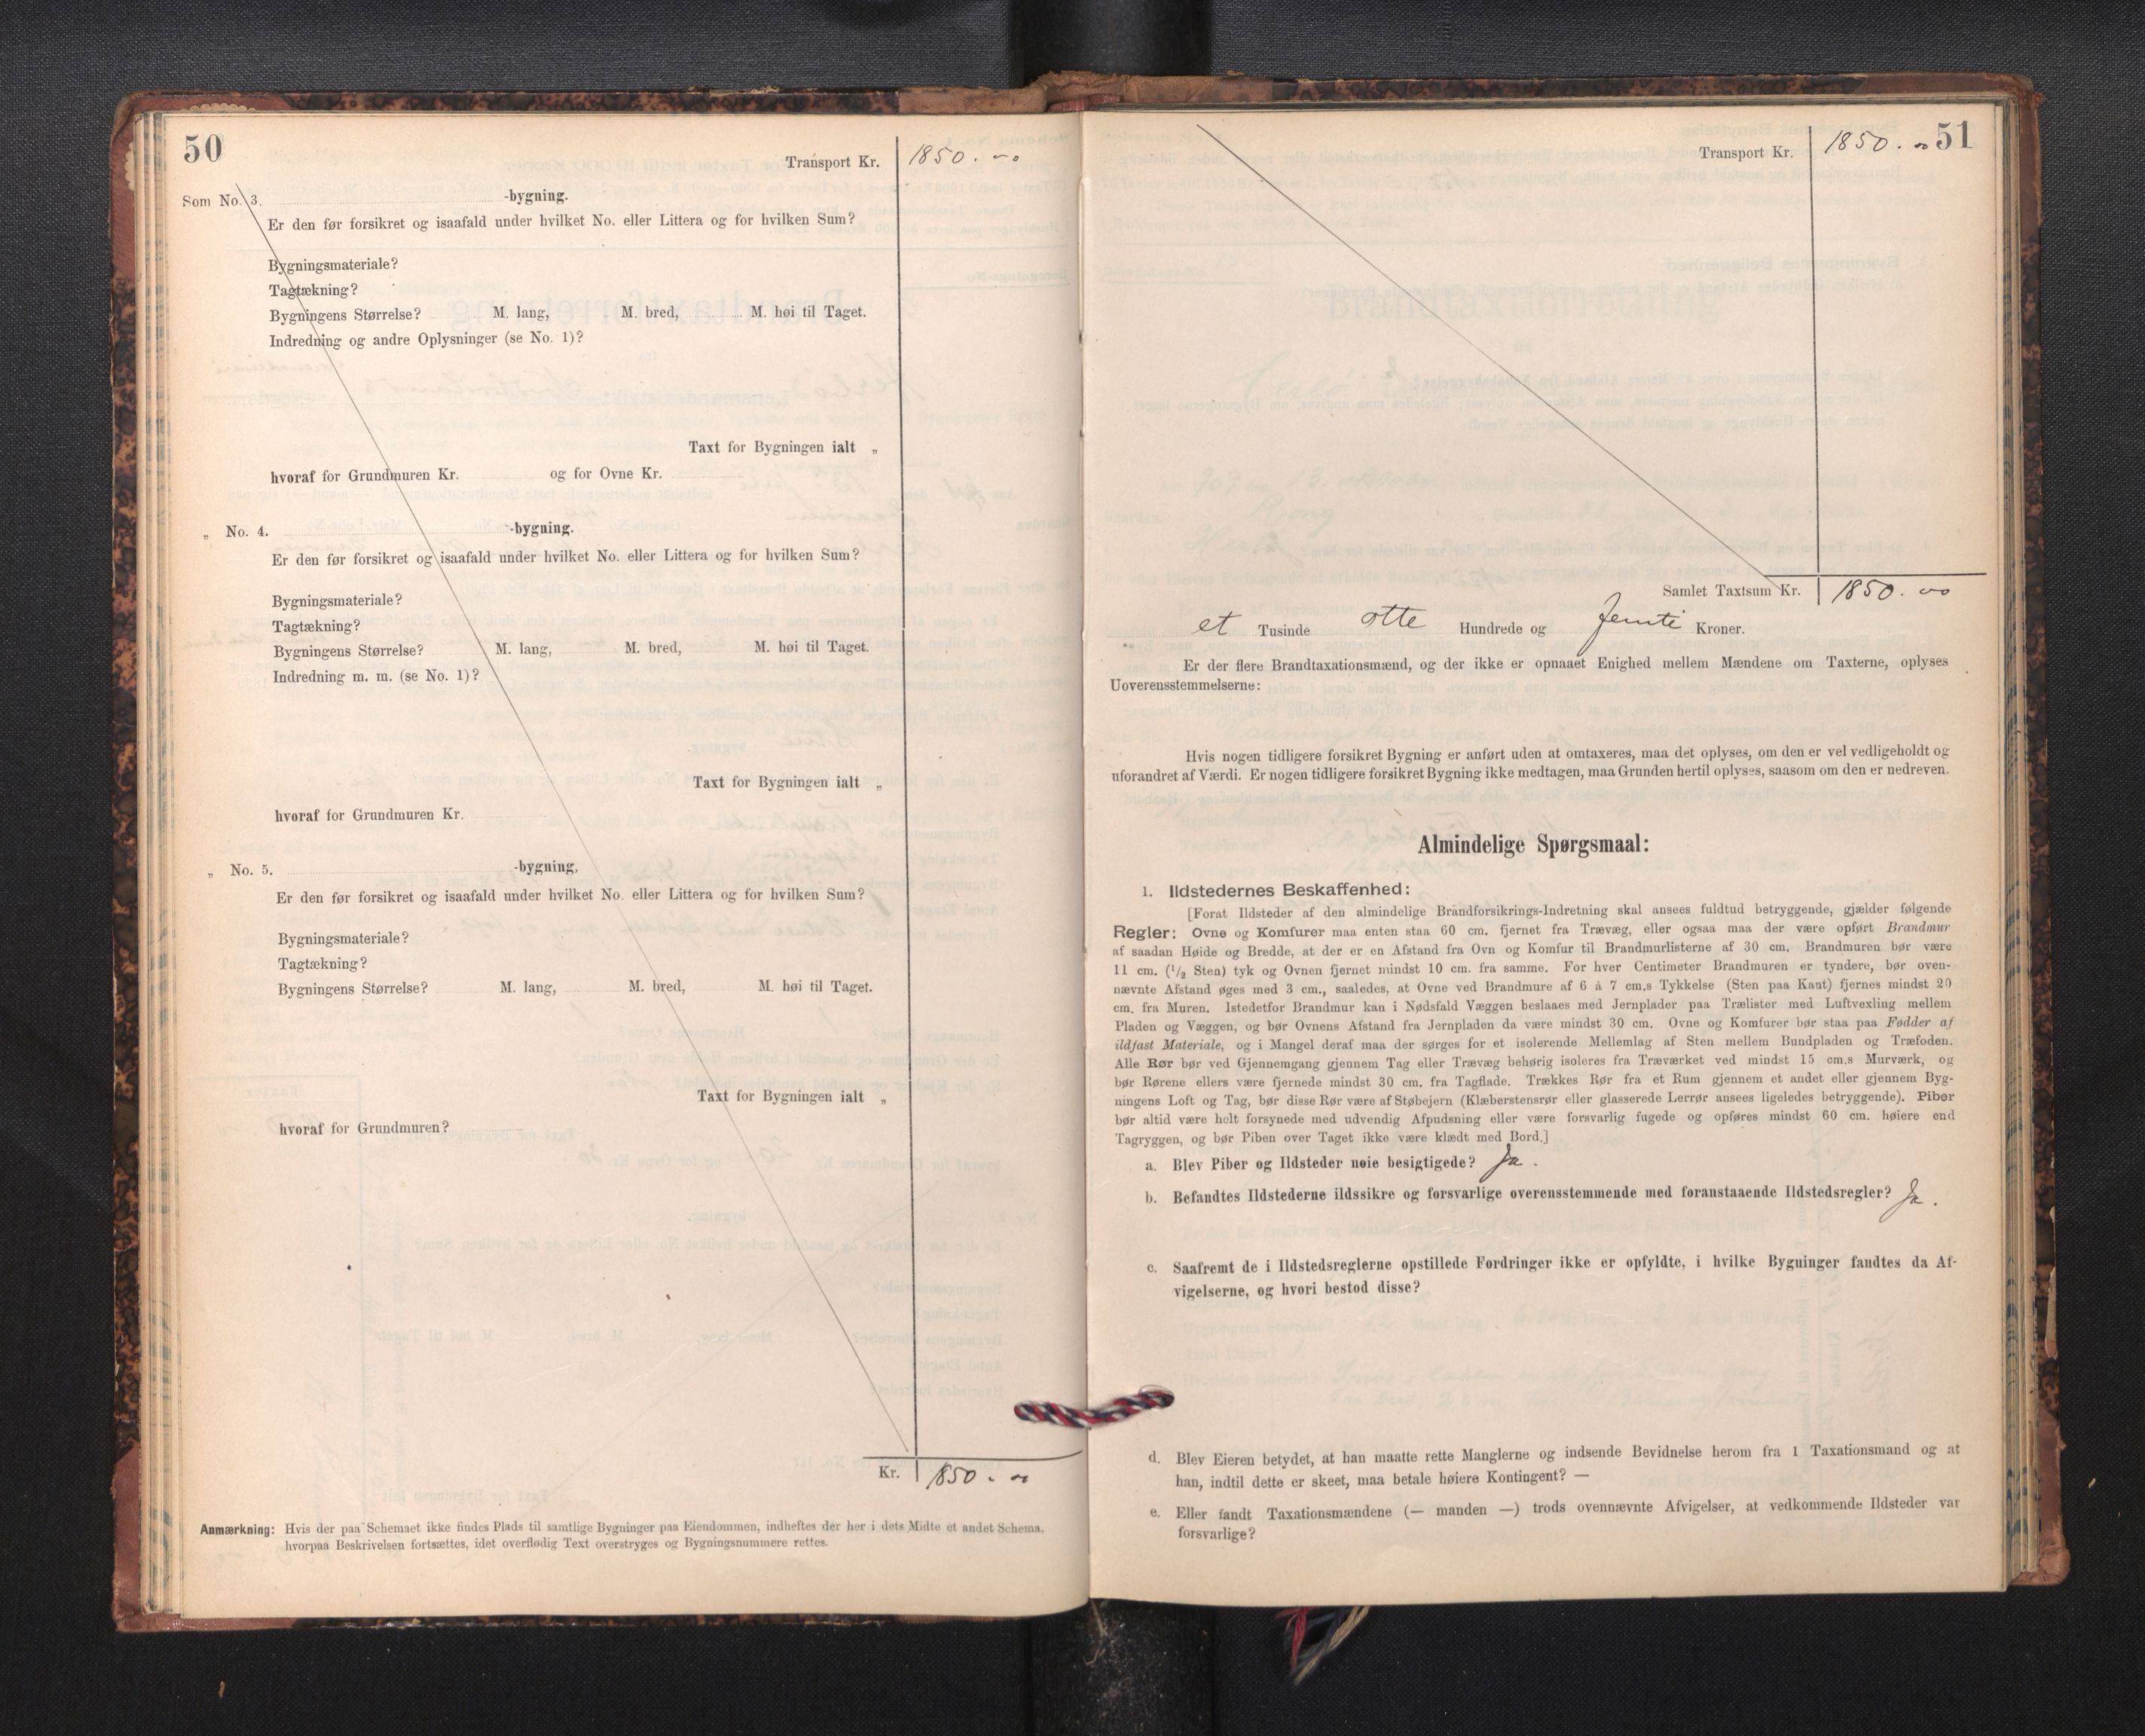 50
Transport Kr. 1850. 00
Som No. 3. -bygning.
Er den før forsikret og isaafald under hvilket No. eller Littera og for hvilken Sum?
Bygningsmateriale?
Tagtækning?
Bygningens Størrelse? M. lang, M. bred, M. høi til Taget.
Indredning og andre Oplysninger (se No. 1)?
Taxt for Bygningen ialt „
hvoraf for Grundmuren Kr. og for Ovne Kr.
„ No. 4. -bygning.
Er den før forsikret og isaafald under hvilket No. eller Littera og for hvilken Sum?
Bygningsmateriale?
Tagtækning?
Bygningens Størrelse? M. lang, M. bred, M. høi til Taget.
Indredning m. m. (se No. 1)?
Taxt for Bygningen ialt „
hvoraf for Grundmuren Kr.
„ No. 5. -bygning,
Er den før forsikret og isaafald under hvilket No. eller Littera og for hvilken Sum?
Bygningsmateriale?
Tagtækning?
Bygningens Størrelse? M. lang, M. bred, M. høi til Taget.
Taxt for Bygningen ialt „
hvoraf for Grundmuren?
Kr. 1850. 00
Anmærkning: Hvis der paa Schemaet ikke findes Plads til samtlige Bygninger paa Eiendommen, indheftes der her i dets Midte et andet Schema,
hvorpaa Beskrivelsen fortsættes, idet overflødig Text overstryges og Bygningsnummere rettes.
51
Transport Kr. 1850. 00
Samlet Taxtsum Kr. 1850. 00
et Tusinde otte Hundrede og femti Kroner.
Er der flere Brandtaxationsmænd, og der ikke er opnaaet Enighed mellem Mændene om Taxterne, oplyses
Uoverensstemmelserne:
Hvis nogen tidligere forsikret Bygning er anført uden at omtaxeres, maa det oplyses, om den er vel vedligeholdt og
uforandret af Værdi. Er nogen tidligere forsikret Bygning ikke medtagen, maa Grunden hertil oplyses, saasom om den er nedreven.
Almindelige Spørgsmaal:
1. Ildstedernes Beskaffenhed:
[Forat Ildsteder af den almindelige Brandforsikrings-Indretning skal ansees fuldtud betryggende, gjælder følgende
Regler: Ovne og Komfurer maa enten staa 60 cm. fjernet fra Trævæg, eller ogsaa maa der være opført Brandmur
af saadan Høide og Bredde, at der er en Afstand fra Ovn og Komfur til Brandmurlisterne af 30 cm. Brandmuren bør være
11 cm. (1/2 Sten) tyk og Ovnen fjernet mindst 10 cm. fra samme. For hver Centimeter Brandmuren er tyndere, bør oven-
nævnte Afstand øges med 3 cm., saaledes, at Ovne ved Brandmure af 6 à 7 cm.s Tykkelse (Sten paa Kant) fjernes mindst 20
cm. fra Muren. Istedetfor Brandmur kan i Nødsfald Væggen beslaaes med Jernplader paa Trælister med Luftvexling mellem
Pladen og Væggen, og bør Ovnens Afstand fra Jernpladen da være mindst 30 cm. Ovne og Komfurer bør staa paa Fødder af
ildfast Materiale, og i Mangel deraf maa der sørges for et isolerende Mellemlag af Sten mellem Bundpladen og Træfoden.
Alle Rør bør ved Gjennemgang gjennem Tag eller Trævæg behørig isoleres fra Træværket ved mindst 15 cm.s Murværk, og
bør Rørene ellers være fjernede mindst 30 cm. fra Tagflade. Trækkes Rør fra et Rum gjennem et andet eller gjennem Byg-
ningens Loft og Tag, bør disse Rør være af Støbejern (Klæberstensrør eller glasserede Lerrør ansees ligeledes betryggende). Piber
bør altid være helt forsynede med udvendig Afpudsning eller være forsvarlig fugede og opføres mindst 60 cm. høiere end
Tagryggen, og bør Piben over Taget ikke være klædt med Bord.]
a. Blev Piber og Ildsteder nøie besigtigede? Ja.
b. Befandtes Ildstederne ildssikre og forsvarlige overensstemmende med foranstaaende Ildstedsregler? Ja.
c. Saafremt de i Ildstedsreglerne opstillede Fordringer ikke er opfyldte, i hvilke Bygninger fandtes da Af-
vigelserne, og hvori bestod disse?
d. Blev Eieren betydet, at han maatte rette Manglerne og indsende Bevidnelse herom fra 1 Taxationsmand og at
han, indtil dette er skeet, maa betale høiere Kontingent? —
e. Eller fandt Taxationsmændene (— manden —) trods ovennævnte Afvigelser, at vedkommende Ildsteder var
forsvarlige?